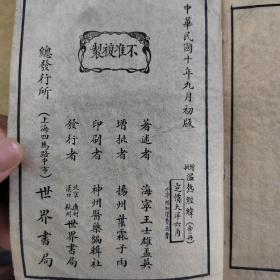 中華民國十年九月初版
不准複製
增批溫熱經緯（全一冊）
定價大洋六角
著述者　海寧王士雄孟英
增批者　揚州葉霖子雨
印刷者　神州醫藥編輯社
發行者　北京 廣州 漢口 杭州 世界書局
總發行所（上海四馬路中市）世界書局